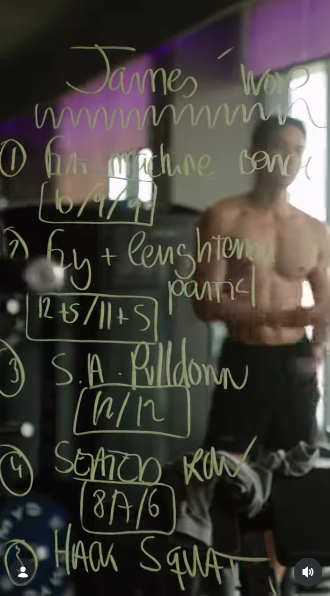 James'
① machine
10/9/9
② Fly + lenghtened
partial
12+5/11+5
3 S.A. Pulldown
12/12
④ SEATED ROW
8/7/6
HACK SQUAT